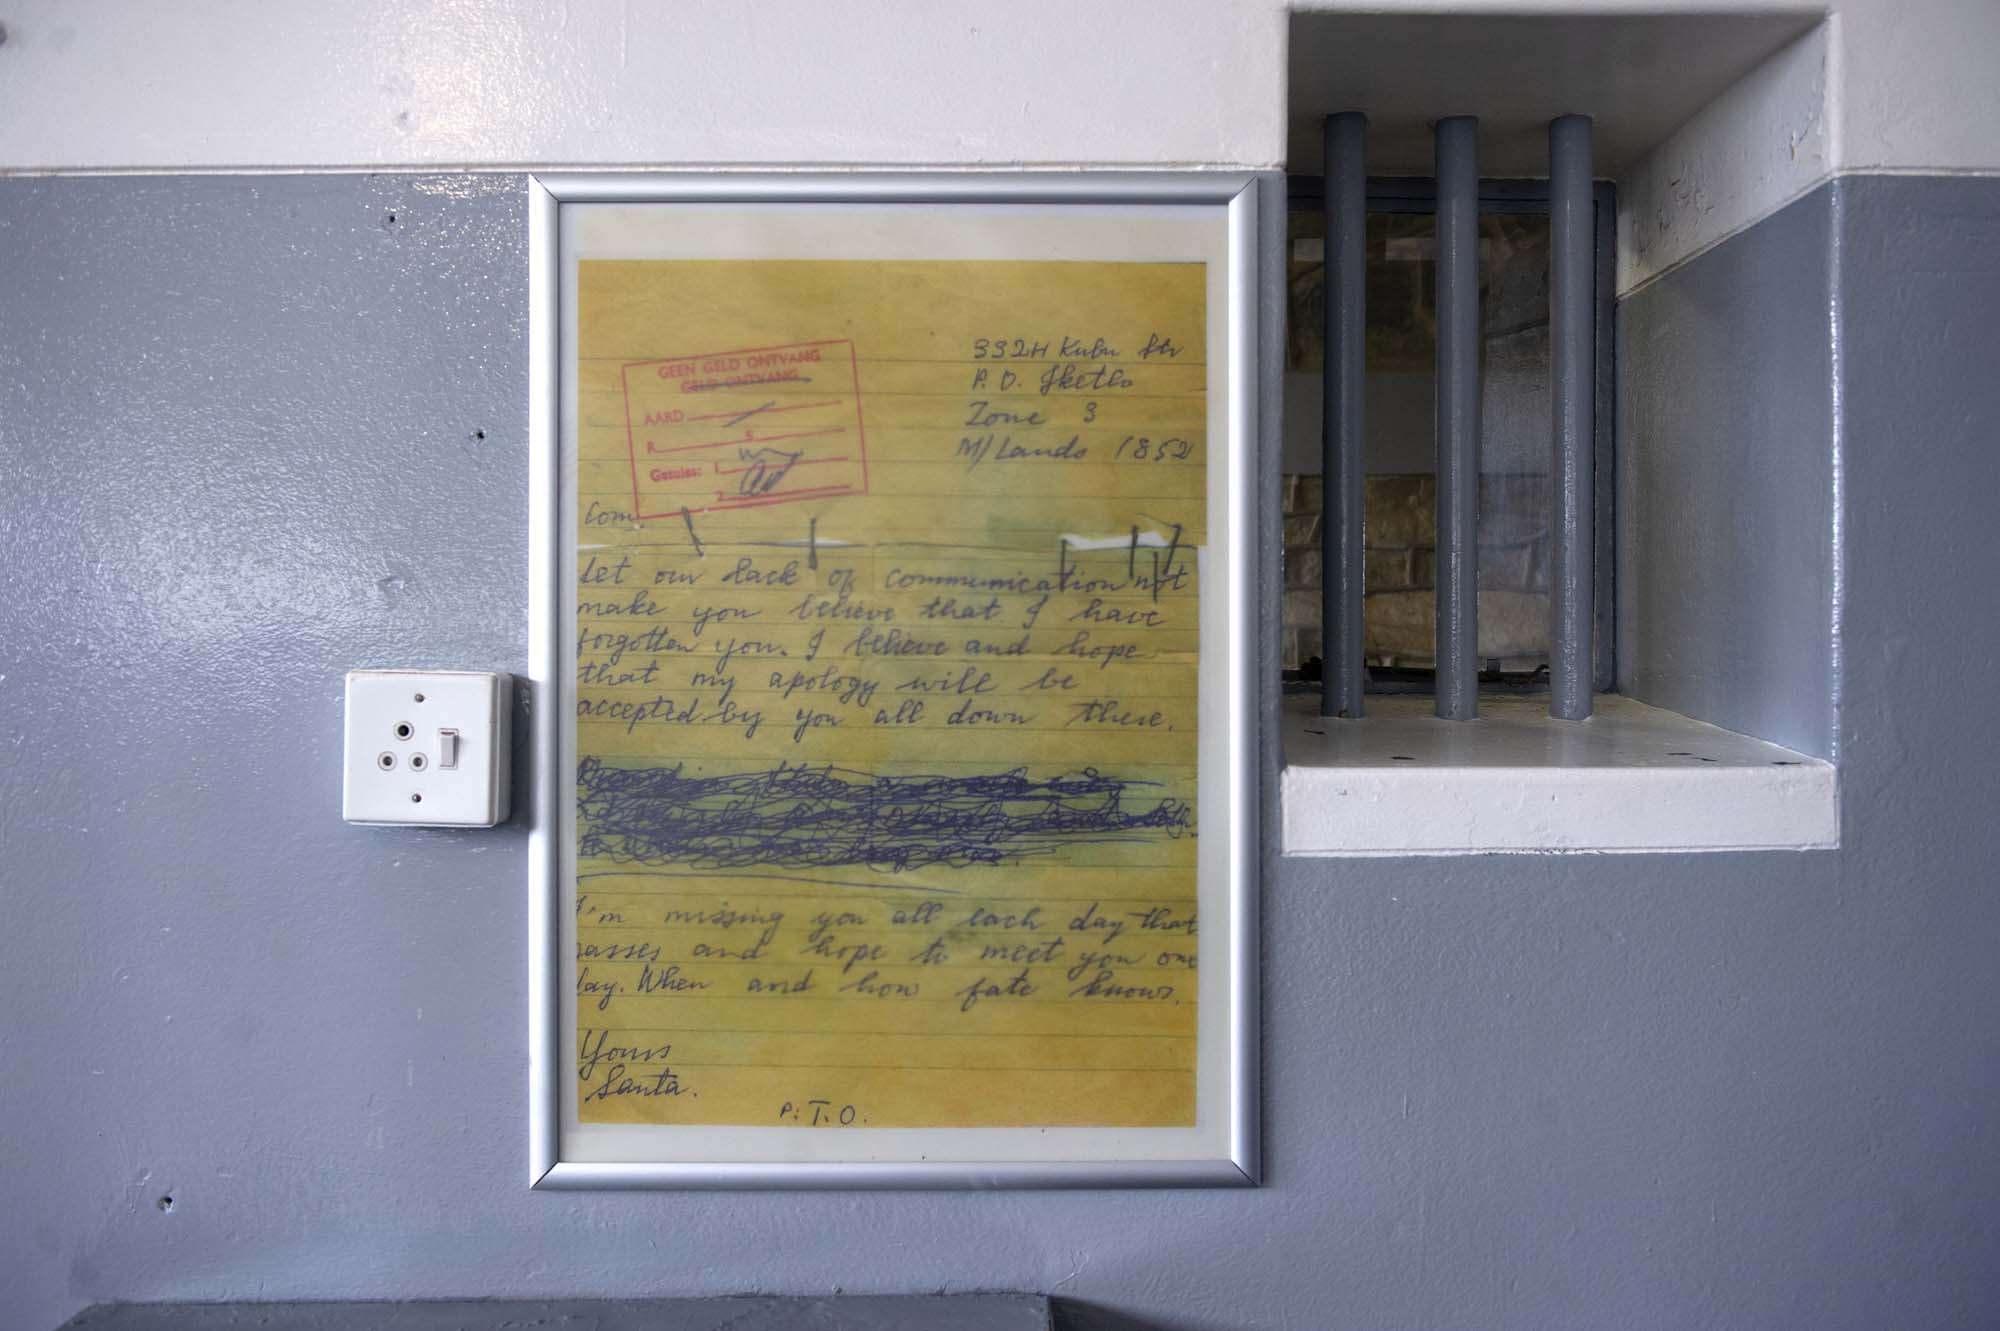 GEEN GELD ONTVANG
GELD ONTVANG
AARD
R
Getuies: 1
2
332H Kubu Str
P.O. Iketlo
Zone 3
M/Lands 1852
Com.
Let our lack of communication not
make you believe that I have
forgotten you. I believe and hope
that my apology will be
accepted by you all down there.
I'm missing you all each day that
passes and hope to meet you one
day. When and how fate knows.
Yours
Santa.
P.T.O.